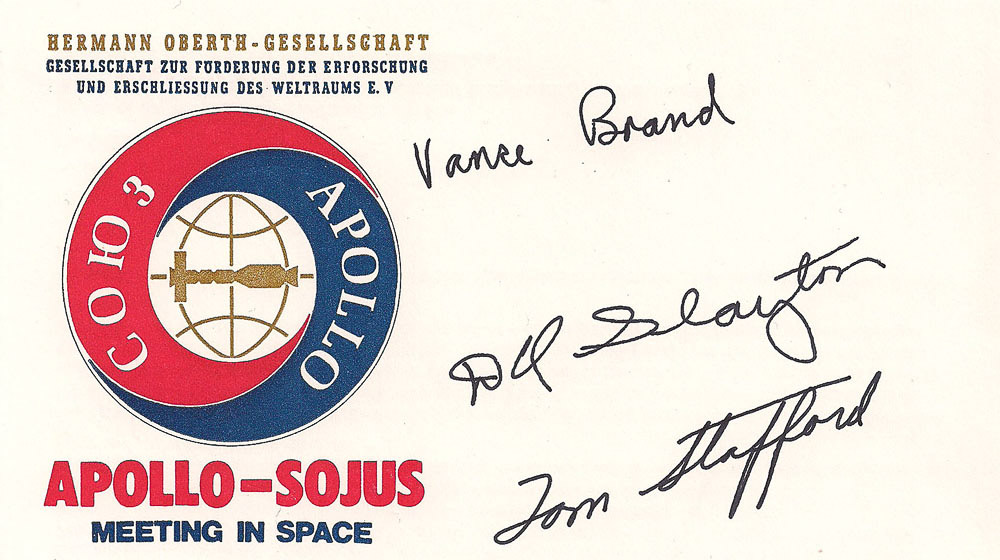 HERMANN OBERTH-GESELLSCHAFT
GESELLSCHAFT ZUR FÖRDERUNG DER ERFORSCHUNG
UND ERSCHLIESSUNG DES WELTRAUMS E.V
СОЮЗ
APOLLO
APOLLO-SOJUS
MEETING IN SPACE
Vance Brand
DK Slayton
Tom Stafford